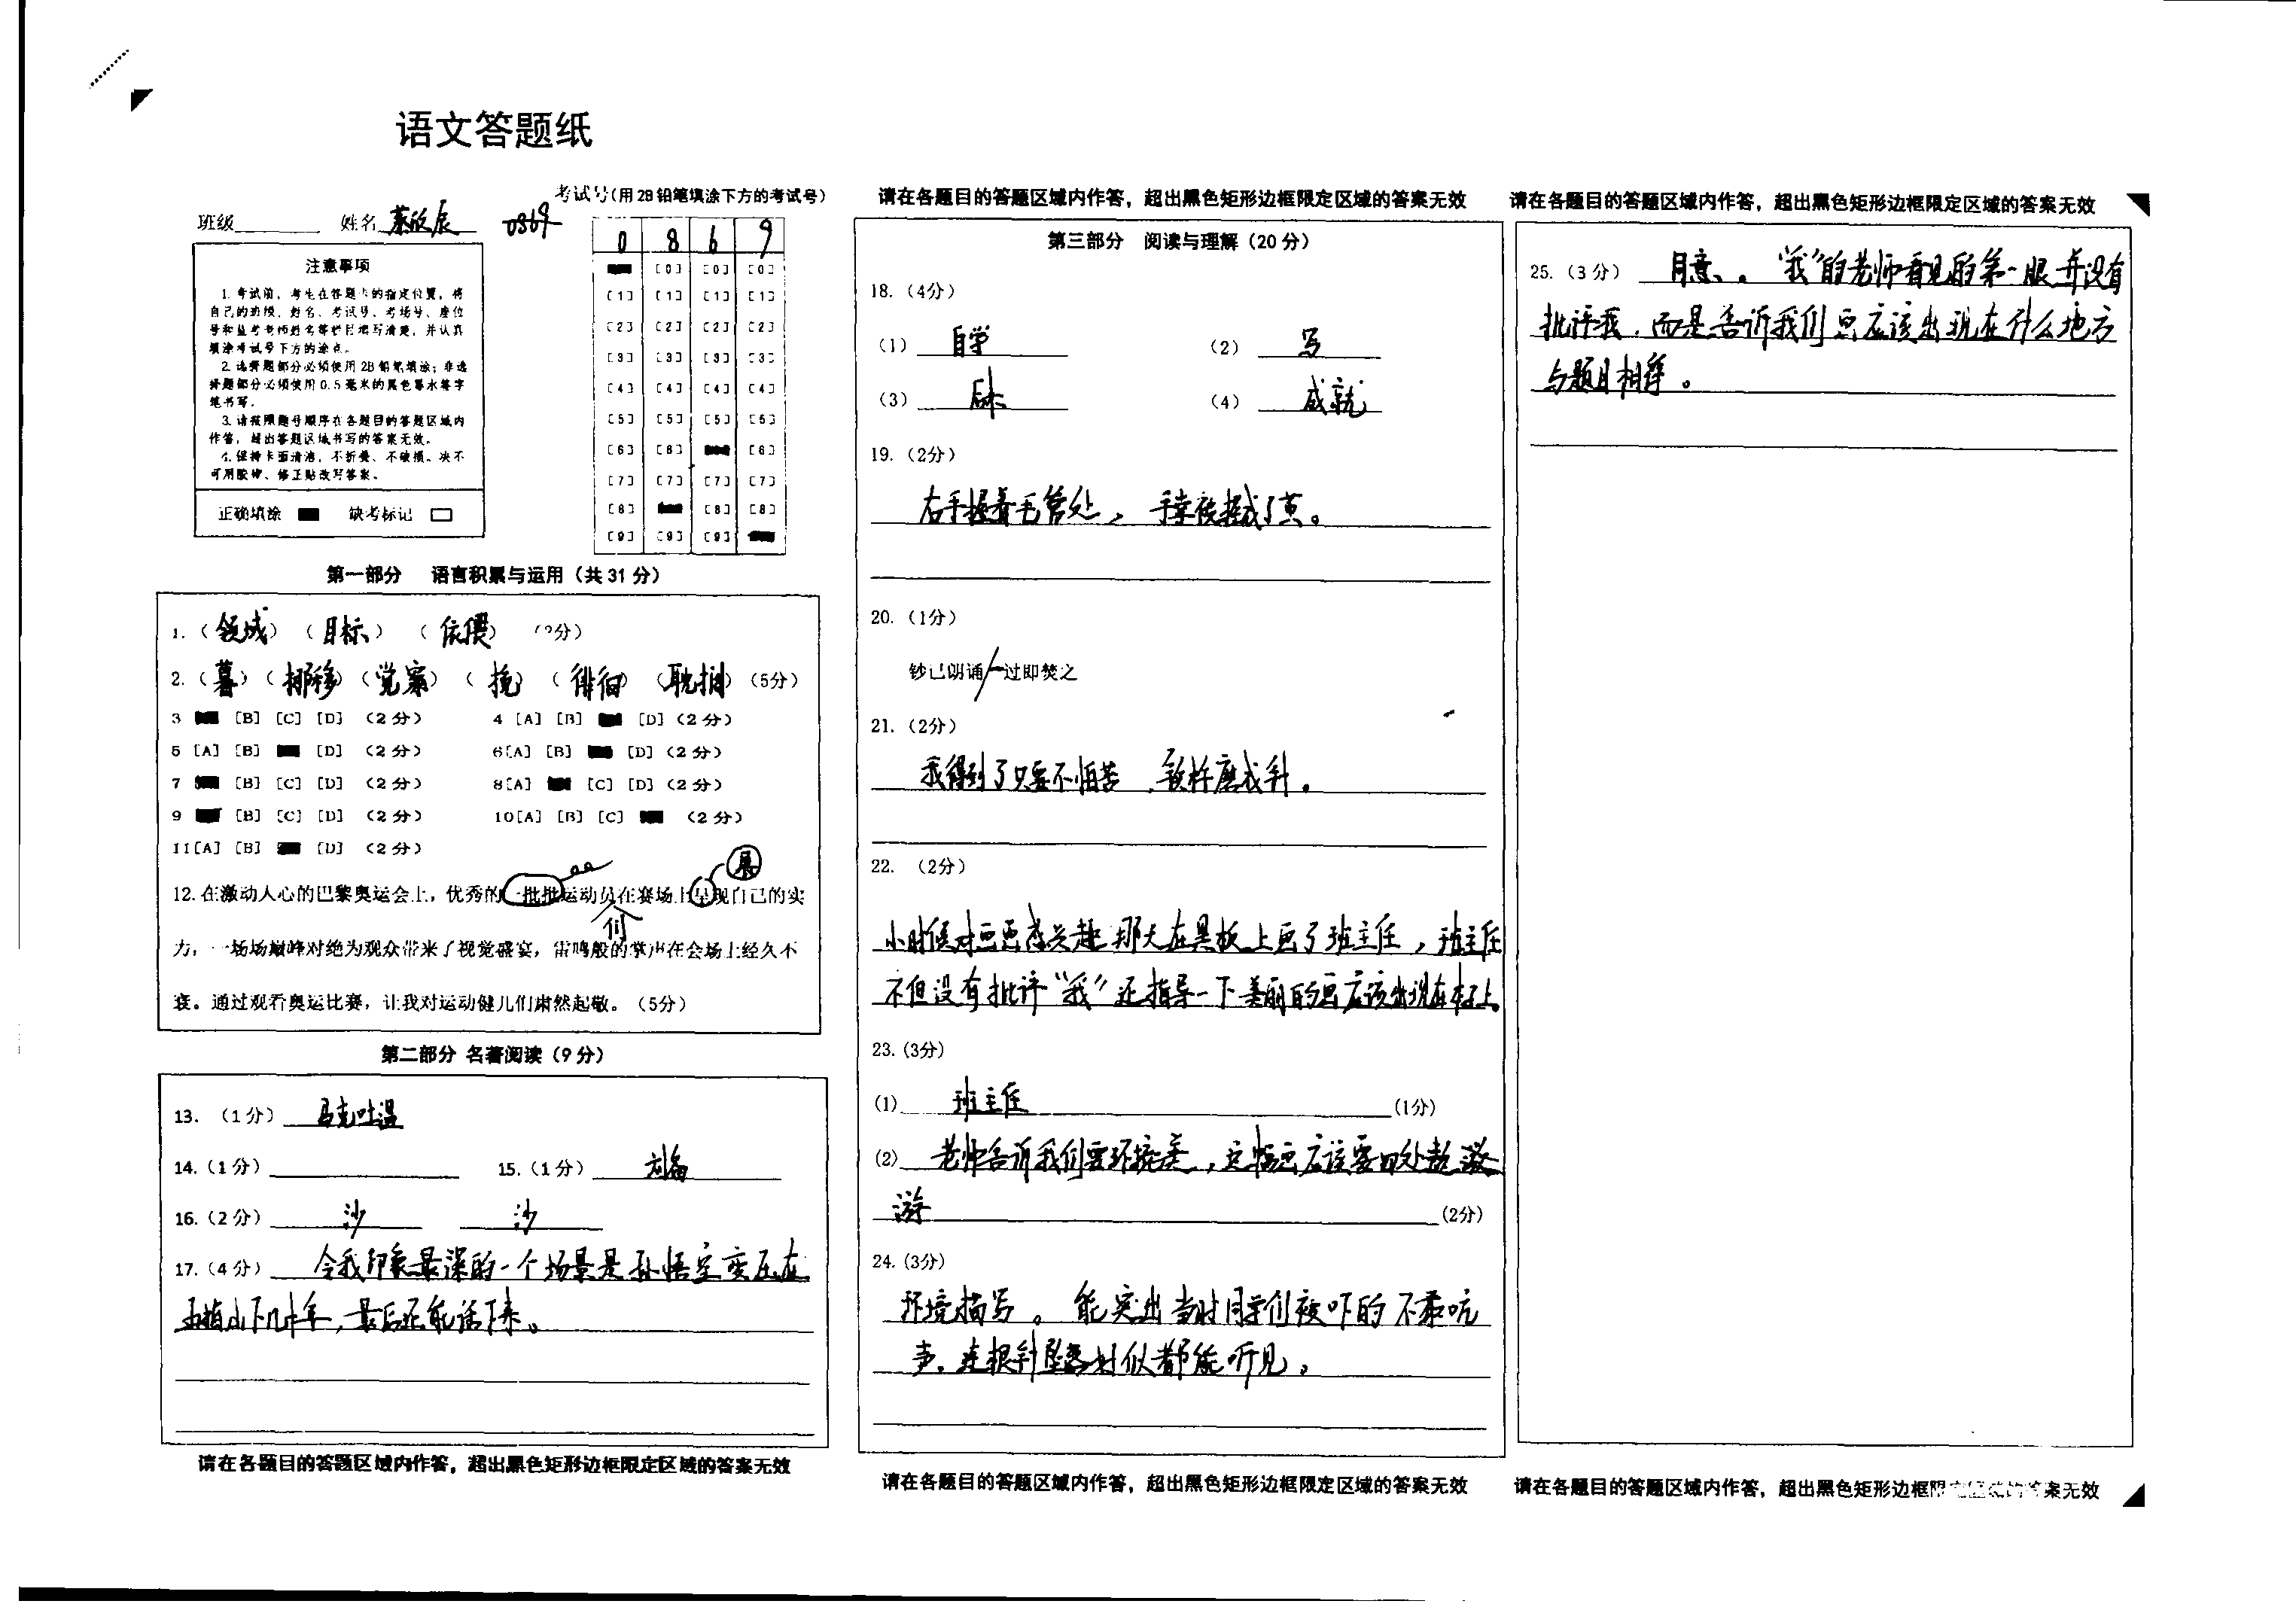 语文答题纸
考试号(用2B铅笔填涂下方的考试号)
班级 姓名 辰 0869
0 8 6 9
注意事项
1.考试前，考生在答题卡的指定位置，将
自己的班级、姓名、考试号、考场号、座位
号和监考老师姓名等栏目填写清楚，并认真
填涂考试号下方的涂点。
2.选择题部分必须使用2B铅笔填涂；非选
择题部分必须使用0.5毫米的黑色墨水签字
笔书写。
3.请按照题号顺序在各题目的答题区域内
作答，超出答题区域书写的答案无效。
4.保持卡面清洁，不折叠、不破损。决不
可用胶带、修正贴改写答案。
正确填涂 缺考标记
[0] [0] [0]
[1] [1] [1] [1]
[2] [2] [2] [2]
[3] [3] [3] [3]
[4] [4] [4] [4]
[5] [5] [5] [5]
[6] [6] [6]
[7] [7] [7] [7]
[8] [8] [8]
[9] [9] [9]
第一部分 语言积累与运用（共31分）
1.（领域）（目标）（依偎）
2.（暮）（挪移）（觉察）（挽）（徘徊）（耽搁）（5分）
3 [B] [C] [D] （2分） 4 [A] [B] [D]（2分）
5 [A] [B] [D] （2分） 6[A] [B] [D]（2分）
7 [B] [C] [D] （2分） 8[A] [C] [D]（2分）
9 [B] [C] [D] （2分） 10[A] [B] [C] （2分）
11[A] [B] [D] （2分）
展
12.在激动人心的巴黎奥运会上，优秀的一批批运动员在赛场上呈现自己的实
们
力，一场场巅峰对绝为观众带来了视觉盛宴，雷鸣般的掌声在会场上经久不
衰。通过观看奥运比赛，让我对运动健儿们肃然起敬。（5分）
第二部分 名著阅读（9分）
13.（1分）马克吐温
14.（1分） 15.（1分） 刘备
16.（2分） 沙 沙
17.（4分） 令我印象最深的一个场景是孙悟空 压在
五指山下几十年，最后还能活下来。
请在各题目的答题区域内作答，超出黑色矩形边框限定区域的答案无效
请在各题目的答题区域内作答，超出黑色矩形边框限定区域的答案无效
第三部分 阅读与理解（20分）
18.（4分）
（1） 自学 （2） 写
（3） （4） 成就
19.（2分）
右手握着毛管处，手 了茧。
20.（1分）
钞已朗诵/一过即焚之
21.（2分）
我得到了只要不怕苦，铁杵磨成针。
22. （2分）
小时候对画画感兴趣 那天在黑板上画了班主任，班主任
不但没有批评“我”还指导一下美丽的画应该出现在本子上。
23.(3分)
(1) 班主任 (1分)
(2) 老师告诉我们要环 ，这幅画应该要四处
游 (2分)
24.(3分)
环境描写。能突出当时同学们被吓的不敢吭
声，连根针 都能听见。
请在各题目的答题区域内作答，超出黑色矩形边框限定区域的答案无效
请在各题目的答题区域内作答，超出黑色矩形边框限定区域的答案无效
25.（3分） 同意。“我”的老师看见的第一眼并没有
批评我，而是告诉我们画应该出现在什么地方
与题目相符。
请在各题目的答题区域内作答，超出黑色矩形边框限 案无效